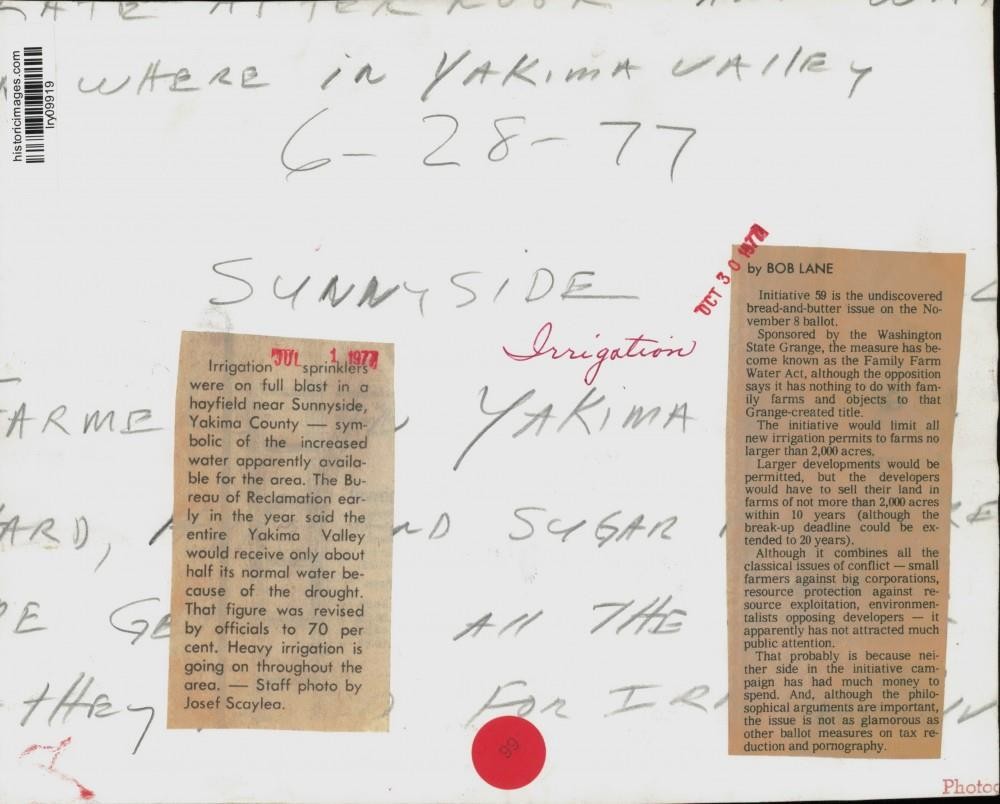 LATE AFTER
WHERE iN YAKiMA VAllEy
historicimages.com
lry09919
6-28-77
SUNNySiDE
Irrigation
JUL 1 1977
Irrigation sprinklers
were on full blast in a
hayfield near Sunnyside,
Yakima County — sym-
bolic of the increased
water apparently availa-
ble for the area. The Bu-
reau of Reclamation ear-
ly in the year said the
entire Yakima Valley
would receive only about
half its normal water be-
cause of the drought.
That figure was revised
by officials to 70 per
cent. Heavy irrigation is
going on throughout the
area. — Staff photo by
Josef Scaylea.
OCT 30 1977
by BOB LANE
Initiative 59 is the undiscovered
bread-and-butter issue on the No-
vember 8 ballot.
Sponsored by the Washington
State Grange, the measure has be-
come known as the Family Farm
Water Act, although the opposition
says it has nothing to do with fam-
ily farms and objects to that
Grange-created title.
The initiative would limit all
new irrigation permits to farms no
larger than 2,000 acres.
Larger developments would be
permitted, but the developers
would have to sell their land in
farms of not more than 2,000 acres
within 10 years (although the
break-up deadline could be ex-
tended to 20 years).
Although it combines all the
classical issues of conflict — small
farmers against big corporations,
resource protection against re-
source exploitation, environmen-
talists opposing developers — it
apparently has not attracted much
public attention.
That probably is because nei-
ther side in the initiative cam-
paign has had much money to
spend. And, although the philo-
sophical arguments are important,
the issue is not as glamorous as
other ballot measures on tax re-
duction and pornography.
FARME YAKiMA
ARD, ND SUGAR
GE All THE
tHEy FOR IRR
99
Photo